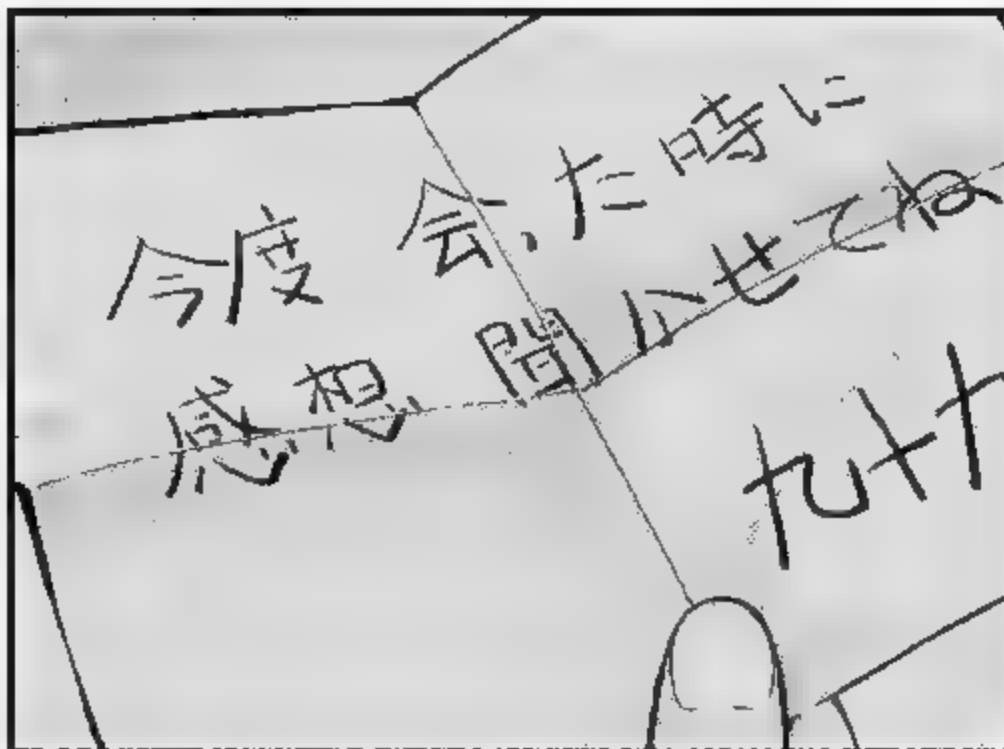 今度 会った時に
感想 聞かせてね
七海